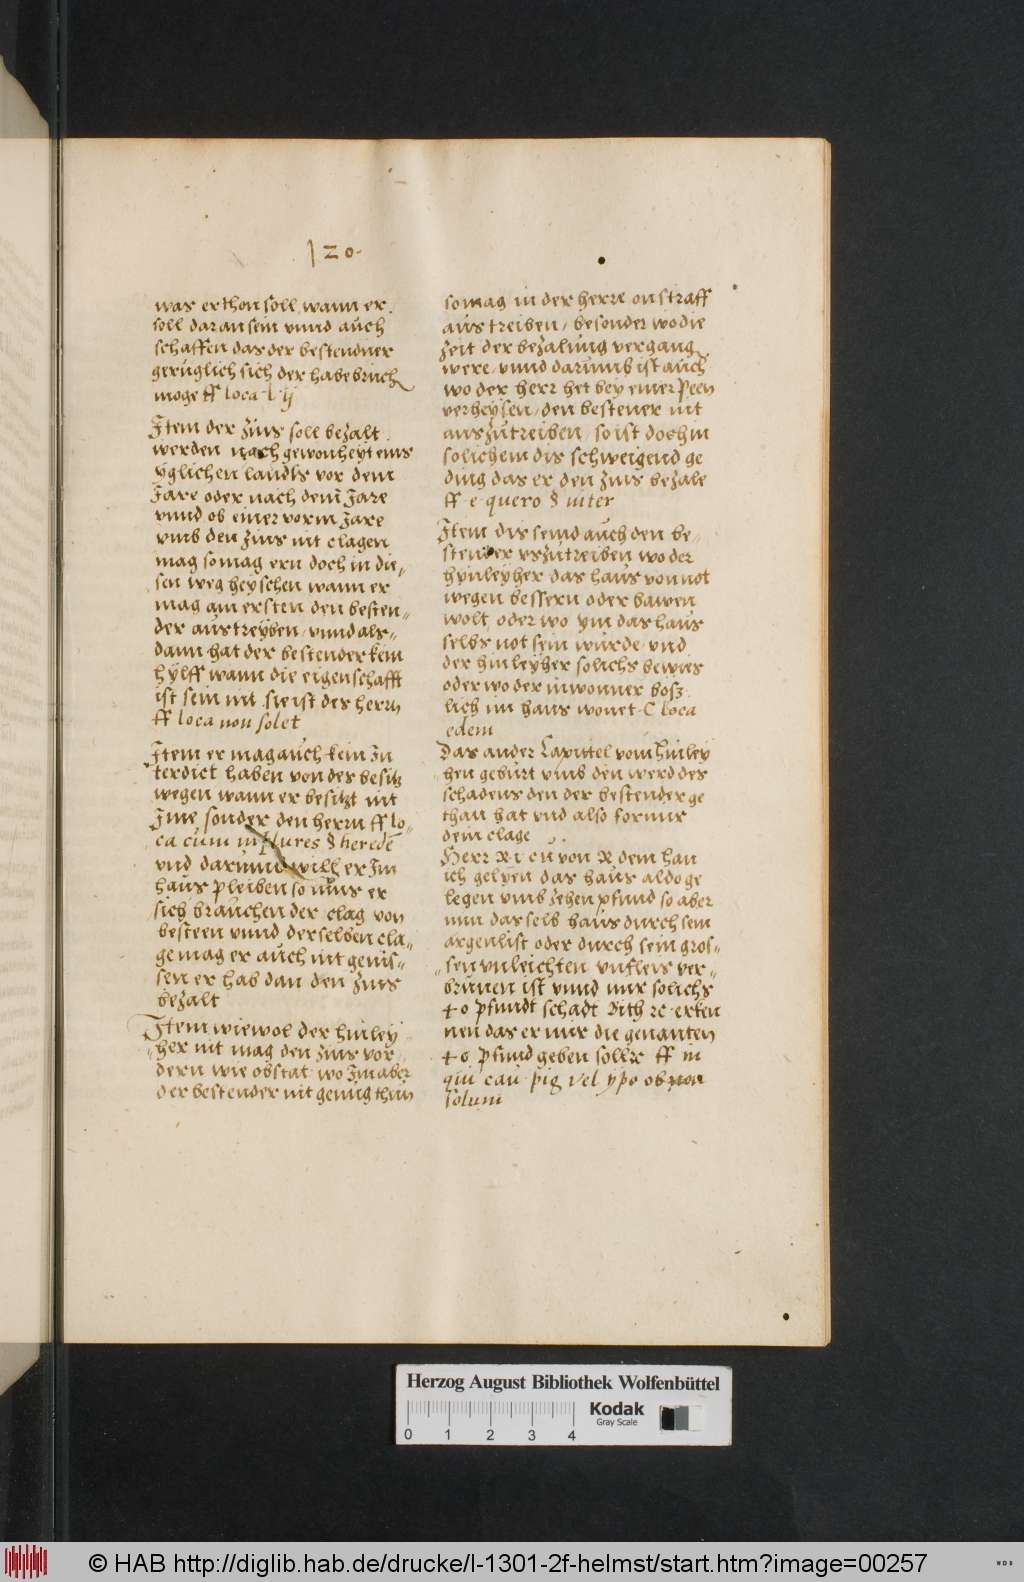 120.
was er thon soll wann er
soll daran sein vnnd auch
schaffen das der bestendner
geruglich sich der habe bruch
moge ff loca l ij
Item der zins soll bezalt
werden nach gewonheyt eins
yglichen landts vor dem
Jare oder nach dem Jare
vnnd ob einer vorm Jare
vmb den zins nit clagen
mag so mag ern doch in die„
sen weg heyschen wann er
mag am ersten den besten„
der austreyben / vnnd als„
dann hat der bestender kein
hylff wann die eigenschafft
ist sein nit sie ist des herrn
ff loca non solet
Item er mag auch kein In
terdict haben von des besitz
wegen wann er besitzt nit
Ime sonder den herrn ff lo„
ca cum in plures § herede
vnd darumb will er Im
haus pleiben so mus er
sich brauchen der clag von
besteen vnnd derselben cla„
ge mag er auch nit genis„
sen er hab dan den zins
bezalt
Item wiewol der hinley
„her nit mag den zins vor
dern wie obstat wo Im aber
der bestender nit genug thun
so mag in der herre on straff
austreiben / besonder wo die
zeit der bezalung vergang
were / vnnd darumb ist auch
wo der herr het bey einer peen
verheysen / den bestener nit
auszutreiben / so ist doch in
solichem dis schweigend ge
ding das er den zins bezale
ff e quero § inter
Item dis seind auch den be„
stender vszutreiben wo der
hynleyher das haus von not
wegen bessern oder bawen
wolt oder wo ym das haus
selbs not sein wurde vnd
der hinleyher solichs bewies
oder wo der inwonner bosz
lich im haus wonet C loca
edem
Das ander Capittel vom hinley
hen geburt vmb den werd des
schadens den der bestender ge
than hat vnd also formir
dein clage
Herr R i cu von R dem han
ich gelyen das haus aldo ge
legen vmb zehen pfund so aber
nun das selb haus durch sein
argenlist oder durch sein gros„
„sen vnleichten vnfleis ver„
brunen ist vnnd mir solichs
40 pfundt schadt Bith rc erken
nen das er mir die genanten
40 pfund geben solle rc ff in
qui cau pig vel ypo ob non
solum
Herzog August Bibliothek Wolfenbüttel
0 1 2 3 4
Kodak
Gray Scale
© HAB http://diglib.hab.de/drucke/l-1301-2f-helmst/start.htm?image=00257